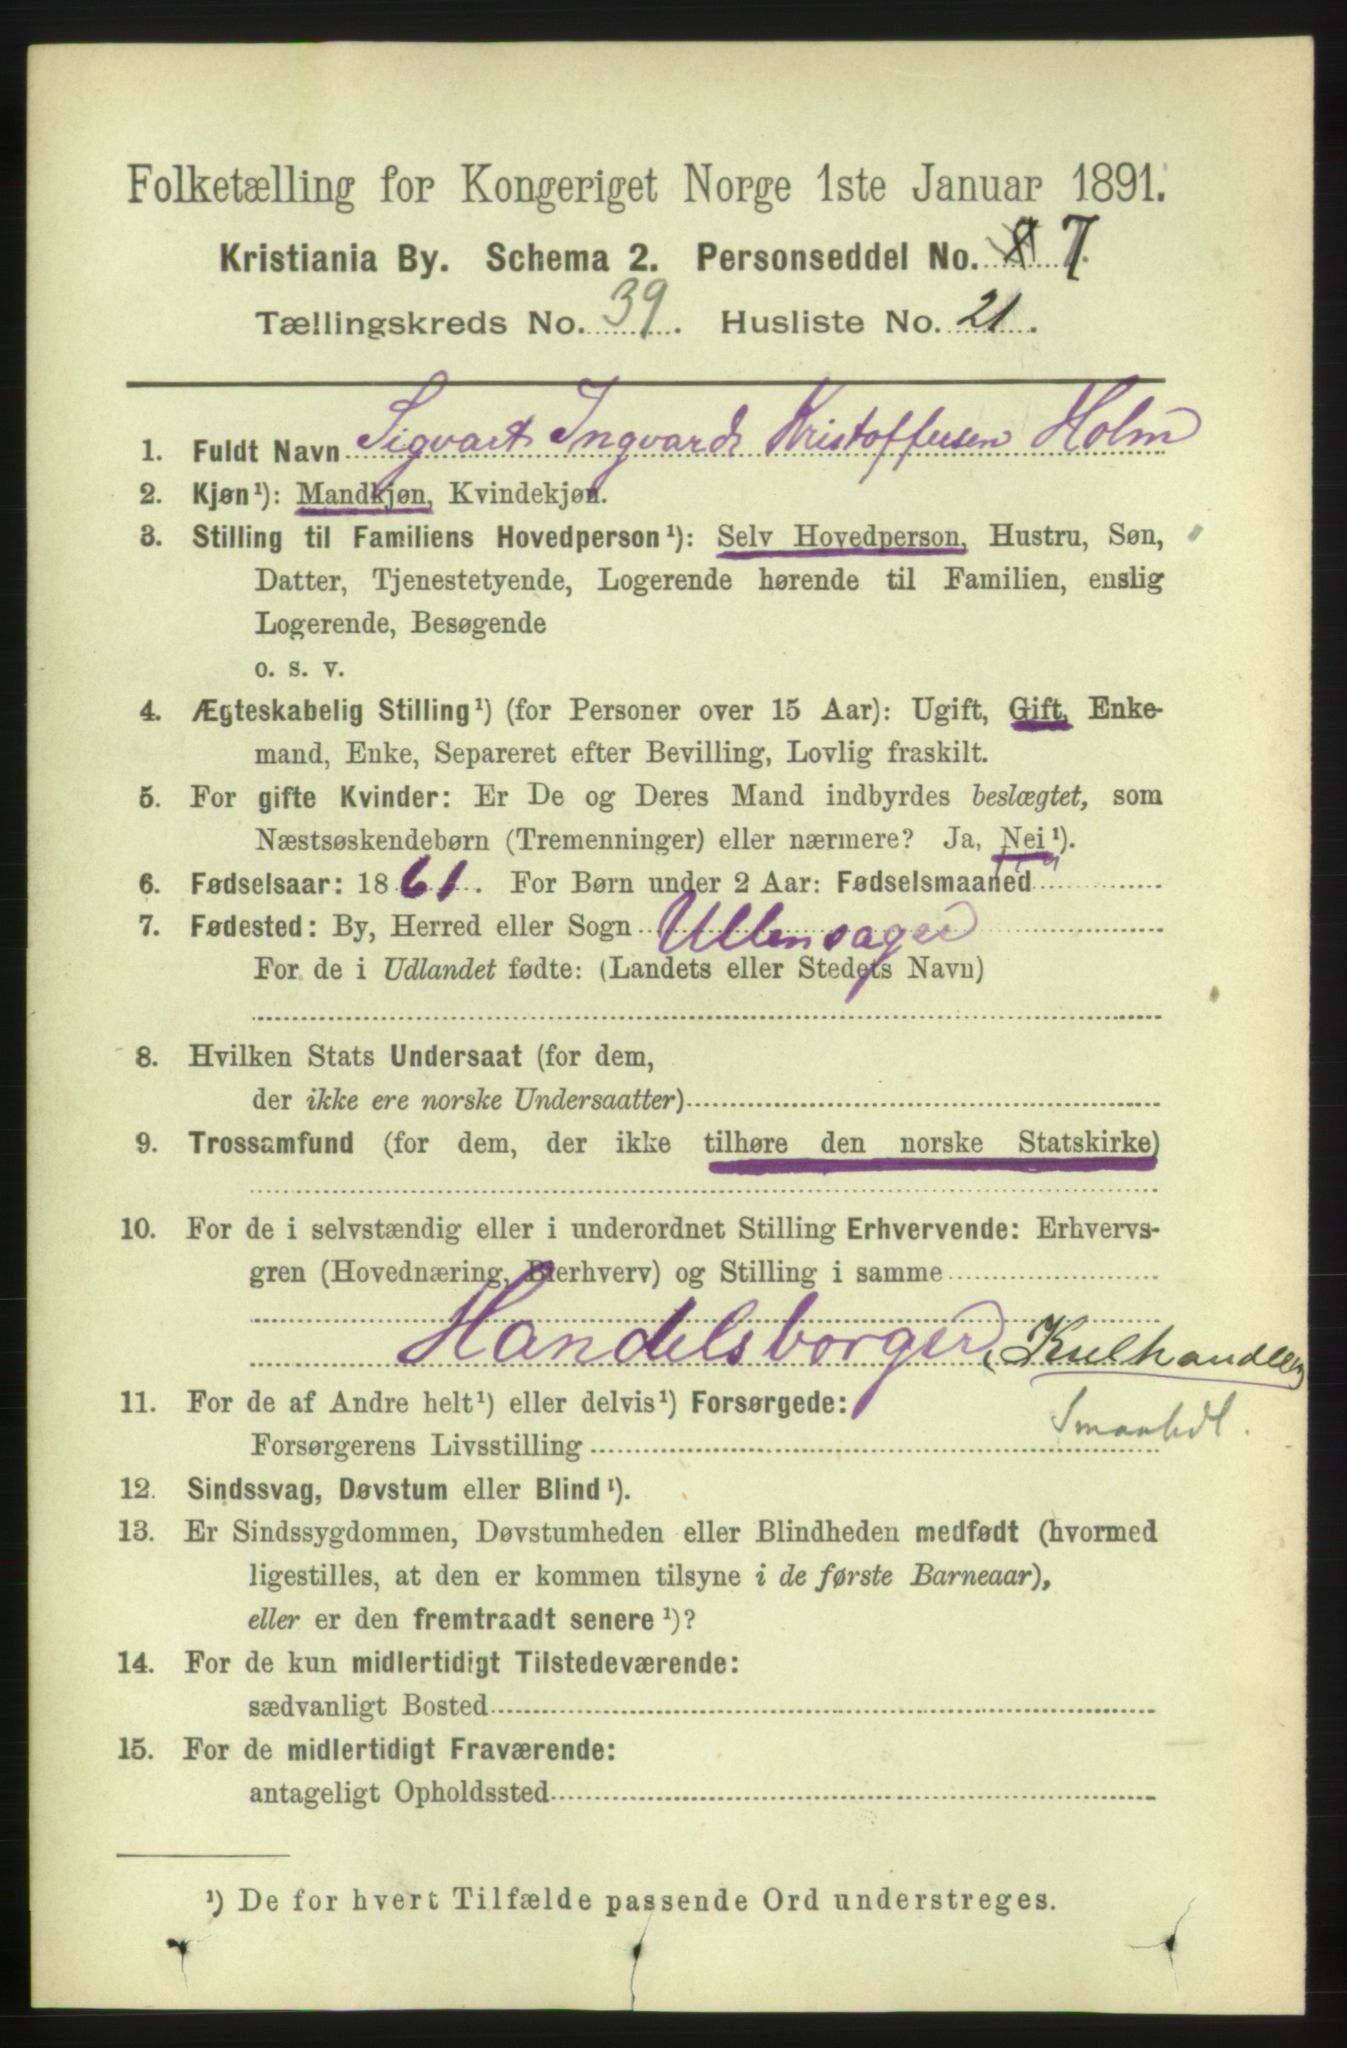 Folketælling for Kongeriget Norge 1ste Januar 1891.
Kristiania By. Schema 2. Personseddel No. 8 7.
Tællingskreds No. 39. Husliste No. 21.
1. Fuldt Navn Sigvart Ingvard Kristoffersen Holm
2. Kjøn¹): Mandkjøn, Kvindekjøn.
3. Stilling til Familiens Hovedperson¹): Selv Hovedperson, Hustru, Søn,
Datter, Tjenestetyende, Logerende hørende til Familien, enslig
Logerende, Besøgende
o. s. v.
4. Ægteskabelig Stilling¹) (for Personer over 15 Aar): Ugift, Gift, Enke-
mand, Enke, Separeret efter Bevilling, Lovlig fraskilt.
5. For gifte Kvinder: Er De og Deres Mand indbyrdes beslægtet, som
Næstsøskendebørn (Tremenninger) eller nærmere? Ja, Nei¹).
6. Fødselsaar: 1861. For Børn under 2 Aar: Fødselsmaaned
7. Fødested: By, Herred eller Sogn Ullensager
For de i Udlandet fødte: (Landets eller Stedets Navn)
8. Hvilken Stats Undersaat (for dem,
der ikke ere norske Undersaatter)
9. Trossamfund (for dem, der ikke tilhøre den norske Statskirke)
10. For de i selvstændig eller i underordnet Stilling Erhvervende: Erhvervs-
gren (Hovednæring, Bierhverv) og Stilling i samme
Handelsborger, Kulhandler
11. For de af Andre helt¹) eller delvis¹) Forsørgede:
Smaahdl.
Forsørgerens Livsstilling
12. Sindssvag, Døvstum eller Blind¹).
13. Er Sindssygdommen, Døvstumheden eller Blindheden medfødt (hvormed
ligestilles, at den er kommen tilsyne i de første Barneaar),
eller er den fremtraadt senere¹)?
14. For de kun midlertidigt Tilstedeværende:
sædvanligt Bosted
15. For de midlertidigt Fraværende:
antageligt Opholdssted
¹) De for hvert Tilfælde passende Ord understreges.